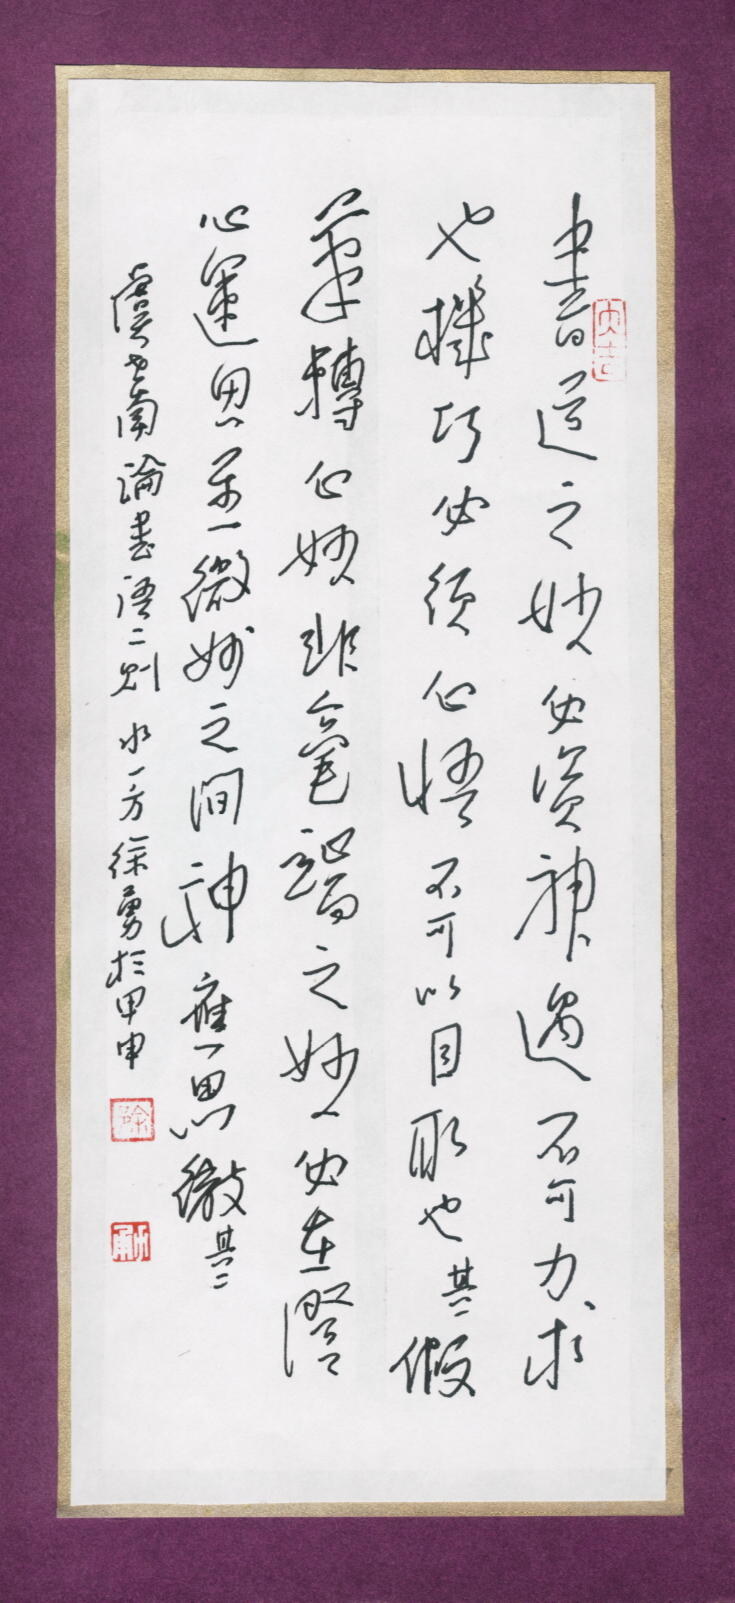 書道之妙必資神遇不可力求
也機巧必須心悟不可以目取也其一假
筆轉心妙非毫端之妙必在澄
心運思至微妙之間神應思徹其二
虞世南論書語二則水一方徐勇於甲申
大吉
徐
勇